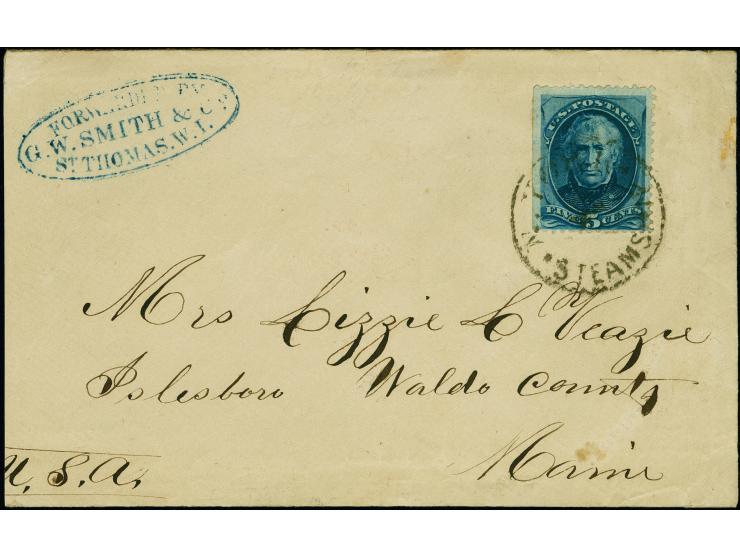 FORWARDED BY
G. W. SMITH & Co
ST THOMAS. W. I.
U.S. POSTAGE
FIVE 5 CENTS
STEAMSHIP
Mrs Lizzie L Veazie
Islesboro Waldo County
Maine
U. S. A.